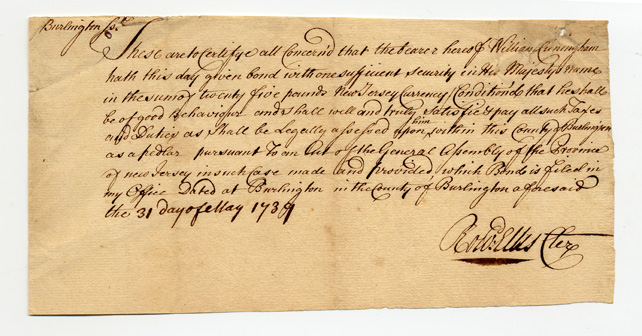 Burlington ss.t
These are to Certifye all Concern'd that the bearer hereof William Cunningham
hath this day given bond with one suffitient security in His Majestys name
in the sum of twenty five pounds New Jersey Currency Conditiond that he shall
be of good Behaviour and shall well and truly Satisfie & pay all such Taxes
and Duties as shall be Legally assessed upon him within this County of Burlington
as a pedlar pursuant to an Act of the General Assembly of the Province
of new Jersey in such case made and provided which Bond is filed in
my Office Dated at Burlington in the County of Burlington aforesaid
the 31 day of May 1739
Rowd. Ellis Cler